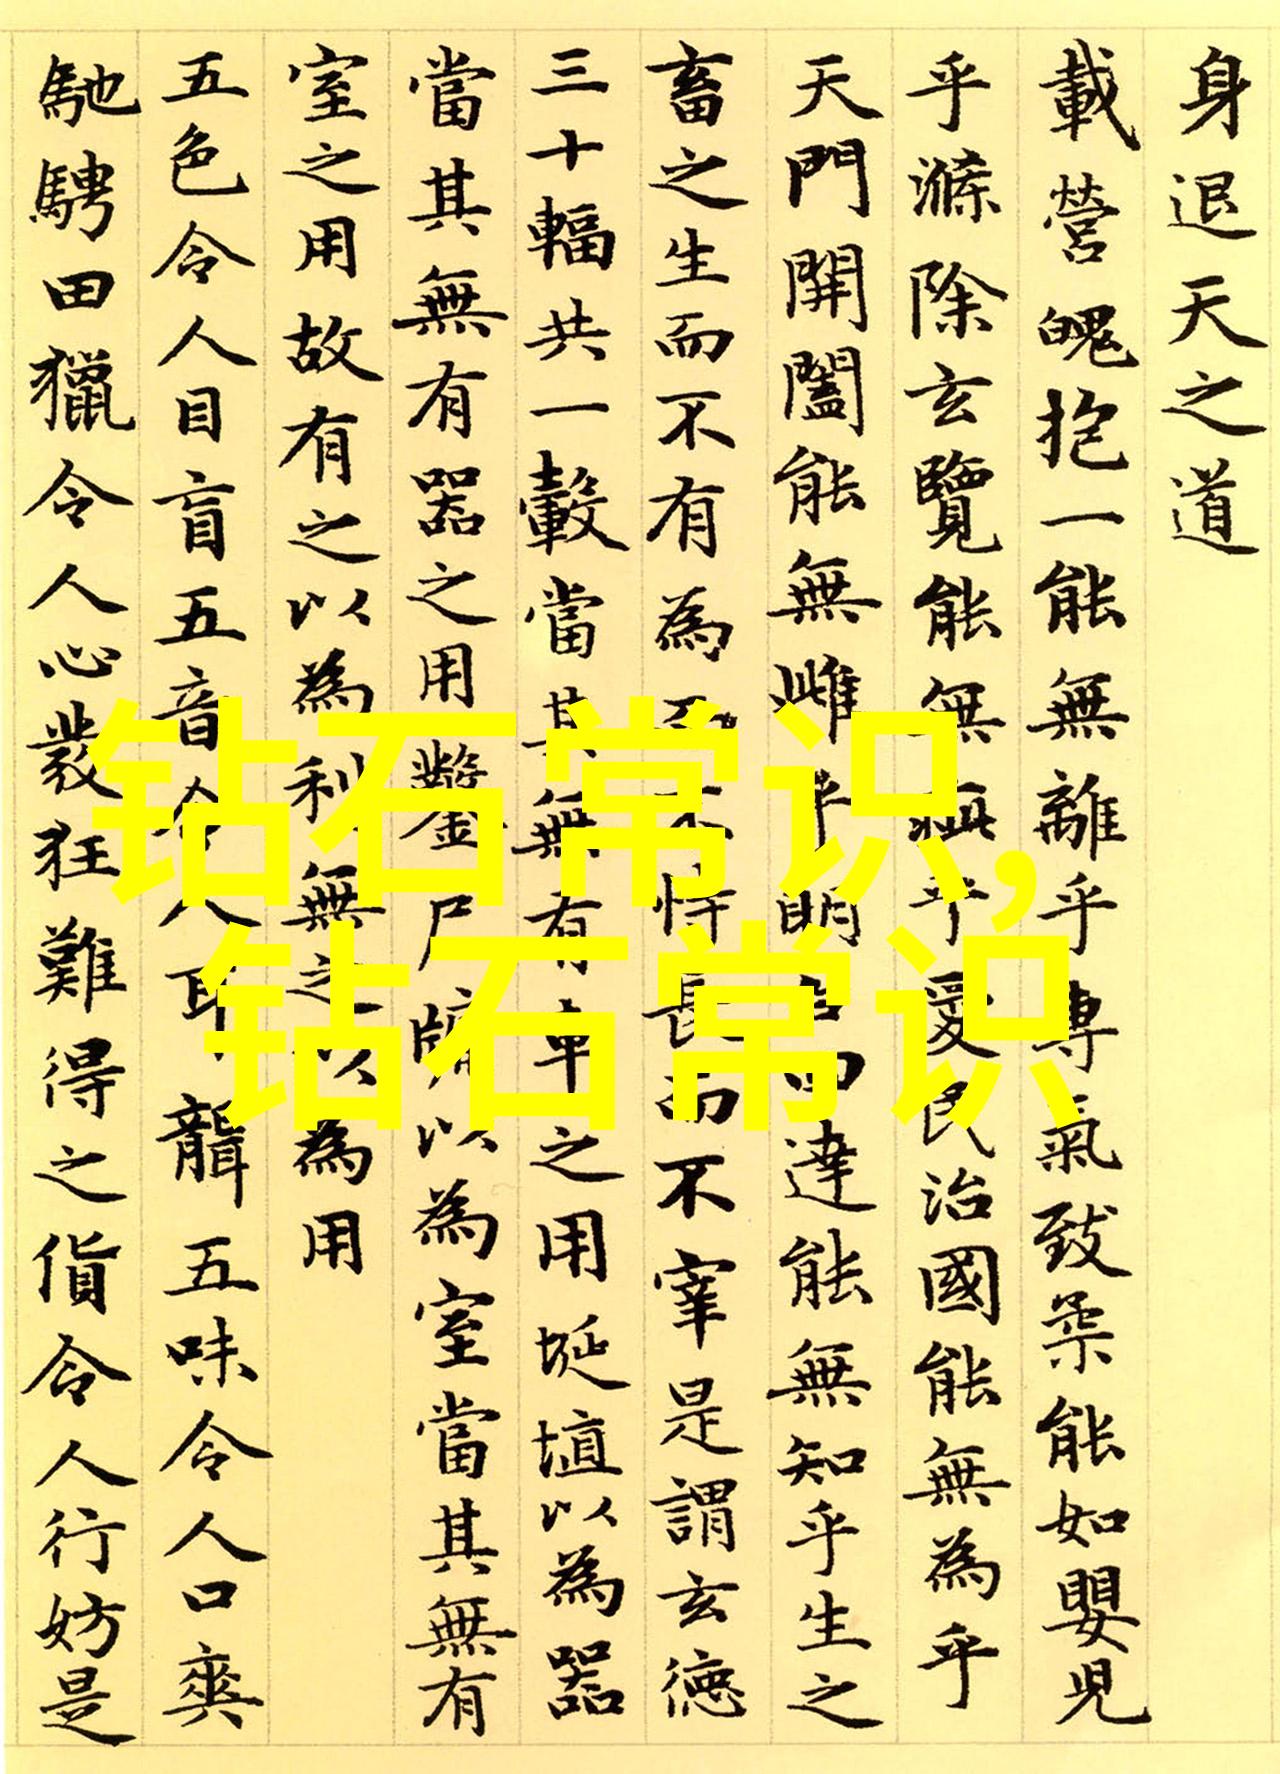 身退天之道
載營魄抱一能無離乎專氣致柔能如嬰兒
乎滌除玄覽能無乎愛民治國能無為乎
天門開闔能無雌乎明白四達能無知乎生之
畜之生而不有為而不恃長而不宰是謂玄德
三十輻共一轂當其無有車之用埏埴以為器
當其無有器之用鑿戶牖以為室當其無有
室之用故有之以為利無之以為用
五色令人目盲五音令人耳聾五味令人口爽
馳騁田獵令人心發狂難得之貨令人行妨是
钻石常识,
钻石常识